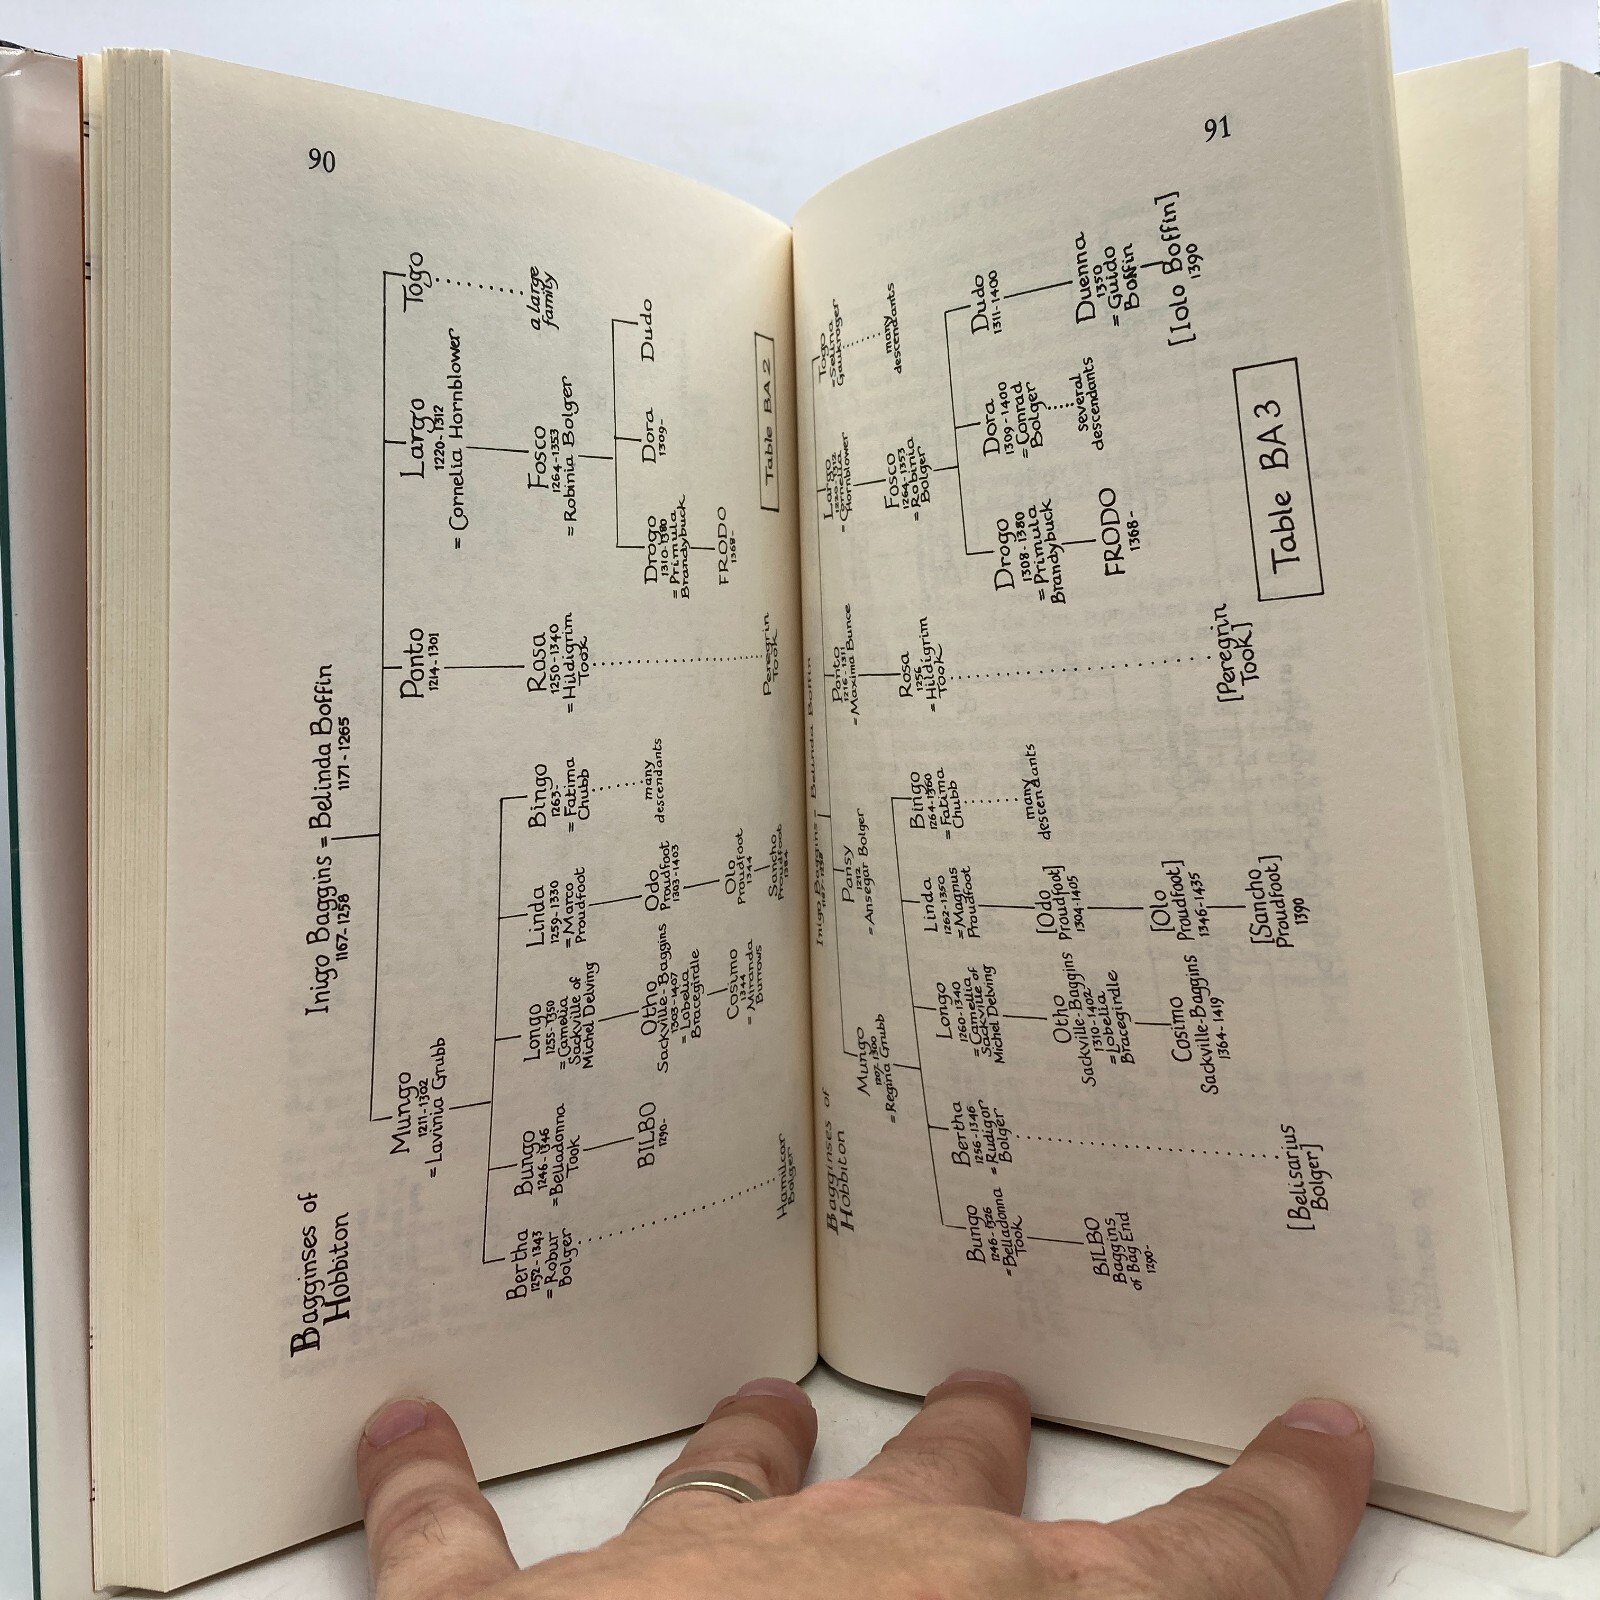 90
Bagginses of
Hobbiton
Inigo Baggins = Belinda Boffin
1167-1258
1171-1265
Mungo
1211-1302
= Lavinia Grubb
Ponto
1214-1301
Largo
1220-1312
= Cornelia Hornblower
Togo
a large
family
Bertha
1252-1343
= Robur
Bolger
Bungo
1246-1346
= Belladonna
Took
Longo
1255-1350
= Camelia
Sackville of
Michel Delving
Linda
1259-1330
= Marco
Proudfoot
Bingo
1263-
= Fatima
Chubb
Rosa
1250-1340
= Hildigrim
Took
Fosco
1264-1353
= Robinia Bolger
BILBO
1290-
Otho
Sackville-Baggins
1303-1407
= Lobelia
Bracegirdle
Odo
Proudfoot
1303-1403
many
descendants
Drogo
1310-1380
= Primula
Brandybuck
Dora
1309-
Dudo
Cosimo
1344
= Miranda
Burrows
Olo
Proudfoot
1344
FRODO
1368-
Hamilcar
Bolger
Sancho
Proudfoot
1384
Peregrin
Took
Table BA 2
91
Bagginses of
Hobbiton
Inigo Baggins = Belinda Boffin
Mungo
1207-1300
= Regina Grubb
Pansy
1212
= Ansegar Bolger
Ponto
1216-1311
= Maxima Bunce
Largo
1220-1312
= Cornelia
Hornblower
Togo
= Selina
Gaukroger
many
descendants
Bungo
1246-1326
= Belladonna
Took
Bertha
1256-1346
= Rudigor
Bolger
Longo
1260-1340
= Camellia
Sackville of
Michel Delving
Linda
1262-1350
= Magnus
Proudfoot
Bingo
1264-1360
= Fatima
Chubb
Rosa
1256
= Hildigrim
Took
Fosco
1264-1353
= Robinia
Bolger
BILBO
Baggins
of Bag End
1290-
Otho
Sackville-Baggins
1310-1402
= Lobelia
Bracegirdle
[Odo
Proudfoot]
1304-1405
many
descendants
Drogo
1308-1380
= Primula
Brandybuck
Dora
1309-1400
= Conrad
Bolger
Dudo
1311-1400
Cosimo
Sackville-Baggins
1364-1419
[Olo
Proudfoot]
1346-1435
FRODO
1368-
several
descendants
Duenna
1350
= Guido
Boffin
[Belisarius
Bolger]
[Sancho
Proudfoot]
1390
[Peregrin
Took]
[Iolo Boffin]
1390
Table BA3